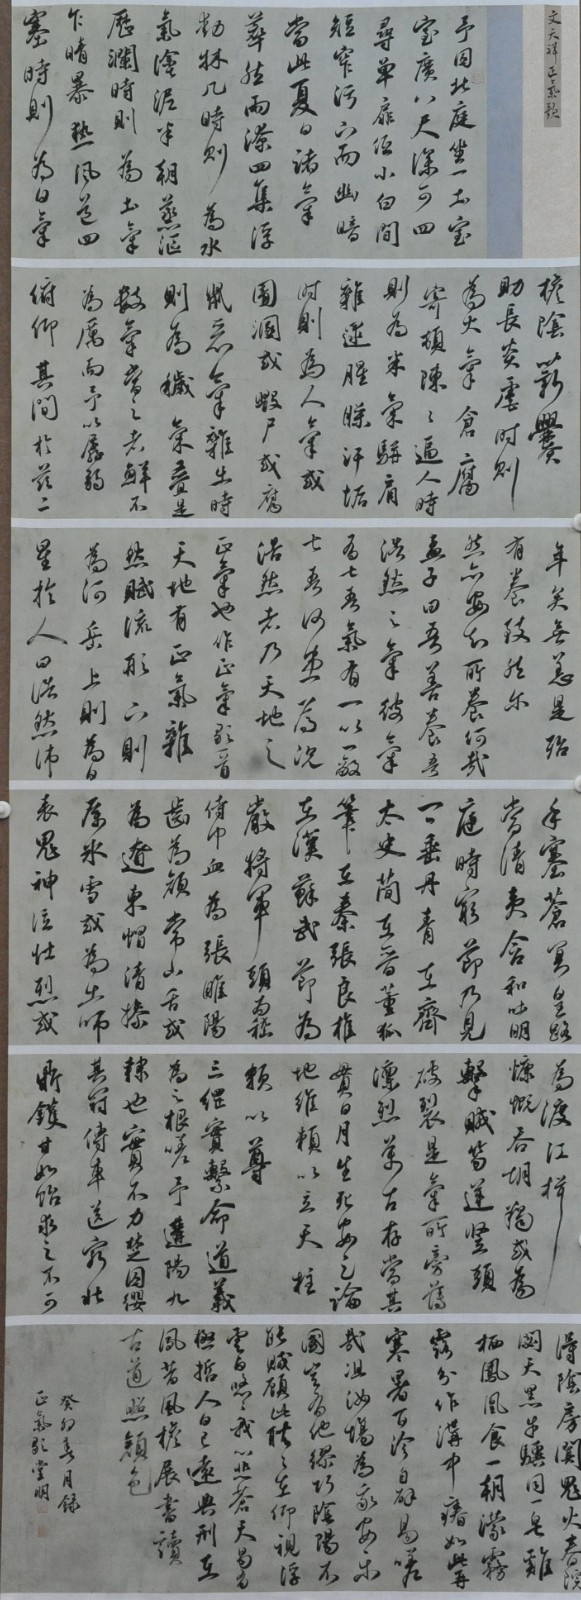 文天祥正氣歌
予囚北庭坐一土室
室廣八尺深可四
尋單扉低小白間
短窄污下而幽暗
當此夏日諸氣
萃然雨潦四集浮
動牀几時則為水
氣塗泥半朝蒸漚
歷瀾時則為土氣
乍晴暴熱風道四
塞時則為日氣
檐陰薪爨
助長炎虐時則
為火氣倉腐
寄頓陳〻逼人時
則為米氣駢肩
雜遝腥臊汗垢
時則為人氣或
圊溷或毀尸或腐
鼠惡氣雜出時
則為穢氣疊是
數氣當之者鮮不
為厲而予以孱弱
俯仰其間於茲二
年矣無恙是殆
有養致然爾
然亦安知所養何哉
孟子曰吾善養吾
浩然之氣彼氣
有七吾氣有一以一敵
七吾何患焉況
浩然者乃天地之
正氣也作正氣歌一首
天地有正氣雜
然賦流形下則
為河岳上則為日
星於人曰浩然沛
乎塞蒼冥皇路
當清夷含和吐明
庭時窮節乃見
一一垂丹青在齊
太史簡在晉董狐
筆在秦張良椎
在漢蘇武節為
嚴將軍頭為嵇
侍中血為張睢陽
齒為顏常山舌或
為遼東帽清操
厲冰雪或為出師
表鬼神泣壯烈或
為渡江楫
慷慨吞胡羯或為
擊賊笏逆豎頭
破裂是氣所旁薄
凜烈萬古存當其
貫日月生死安足論
地維賴以立天柱
賴以尊
三綱實繫命道義
為之根嗟予遘陽九
隸也實不力楚囚纓
其冠傳車送窮北
鼎鑊甘如飴求之不可
得陰房闃鬼火春院
閟天黑牛驥同一皂雞
栖鳳凰食一朝濛霧
露分作溝中瘠如此再
寒暑百沴自辟易嗟
哉沮洳場為我安樂
國豈有他繆巧陰陽不
能賊顧此耿〻在仰視浮
雲白悠〻我心悲蒼天曷有
極哲人日已遠典刑在
夙昔風檐展書讀
古道照顏色
癸卯春月錄
正氣歌堂明